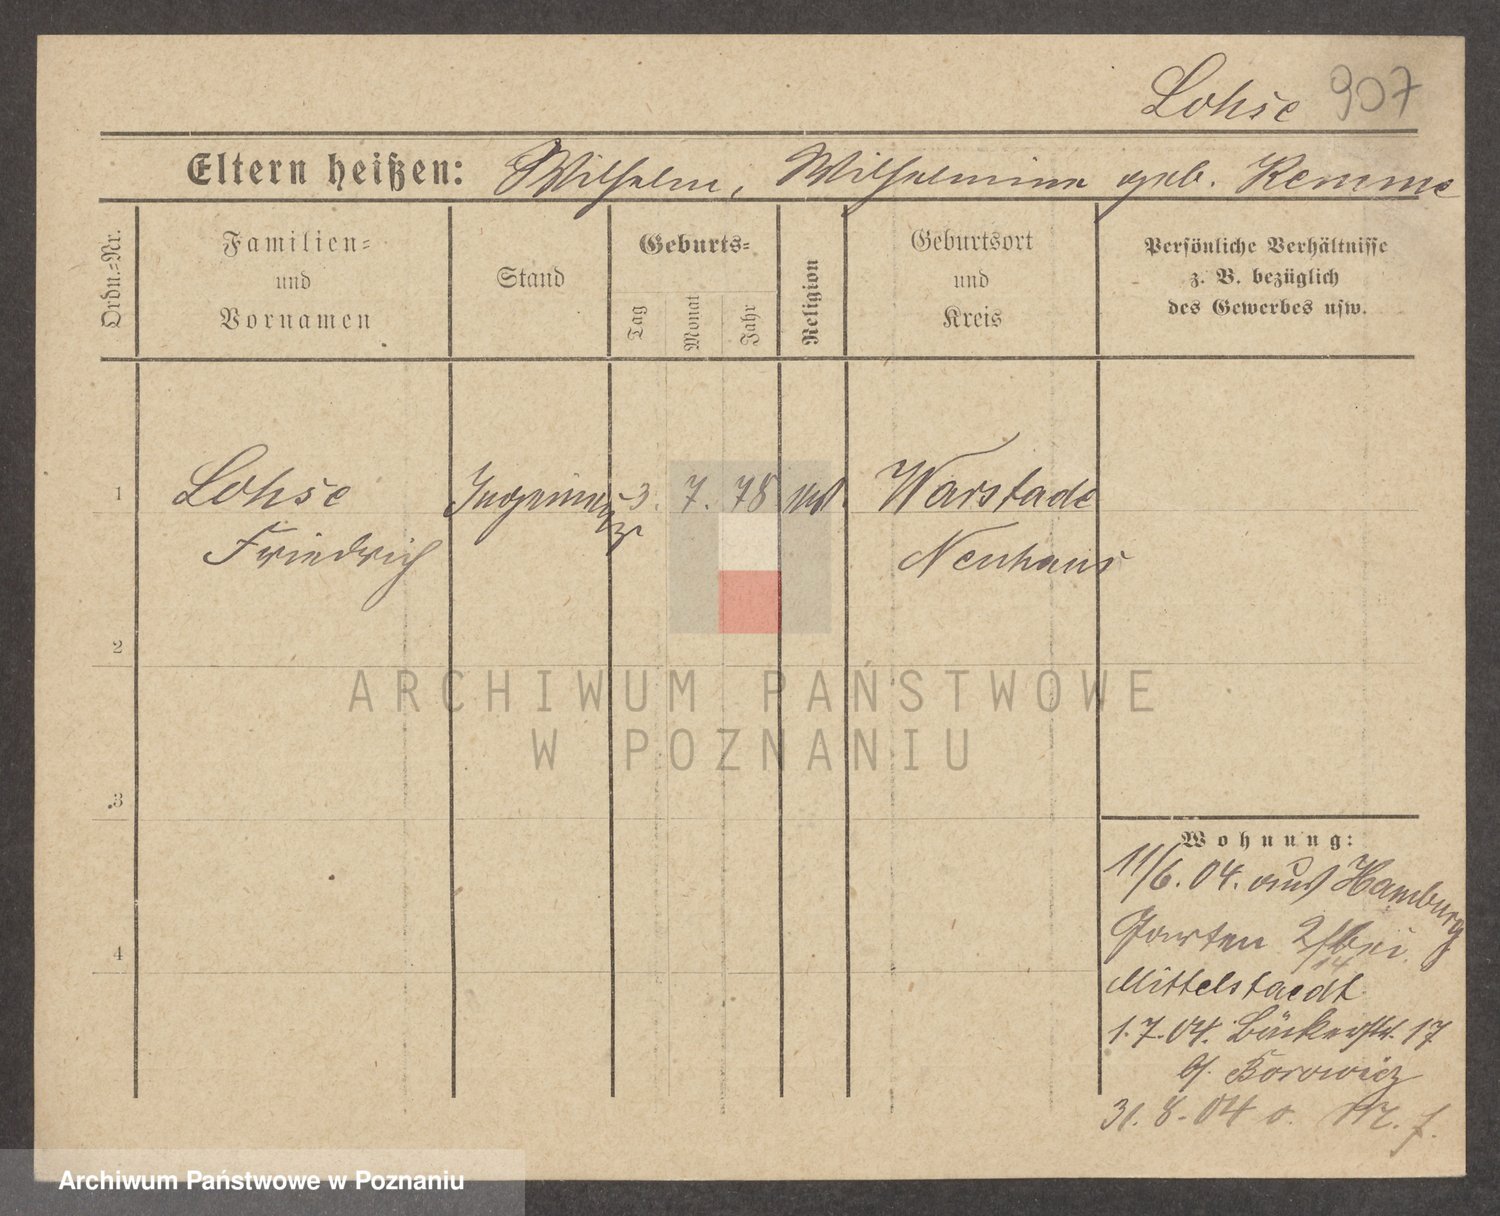 Lohse 907
Eltern heißen: Wilhelm, Wilhelmine geb. Remme
Ordn.=Nr.
Familien=
und
Vornamen
Stand
Geburts=
Tag
Monat
Jahr
Religion
Geburtsort
und
Kreis
Persönliche Verhältnisse
z. B. bezüglich
des Gewerbes usw.
1 Lohse Ingenieur 3. 7. 78 Warstade
Friedrich Neuhaus
2
3
4
ARCHIWUM PAŃSTWOWE
W POZNANIU
Wohnung:
11/6. 04. aus Hamburg
Garten 2/14 bei
Mittelstaedt
1.7.04. Bäckerstr. 17
b/ Borowicz
31. 8. 04
Archiwum Państwowe w Poznaniu